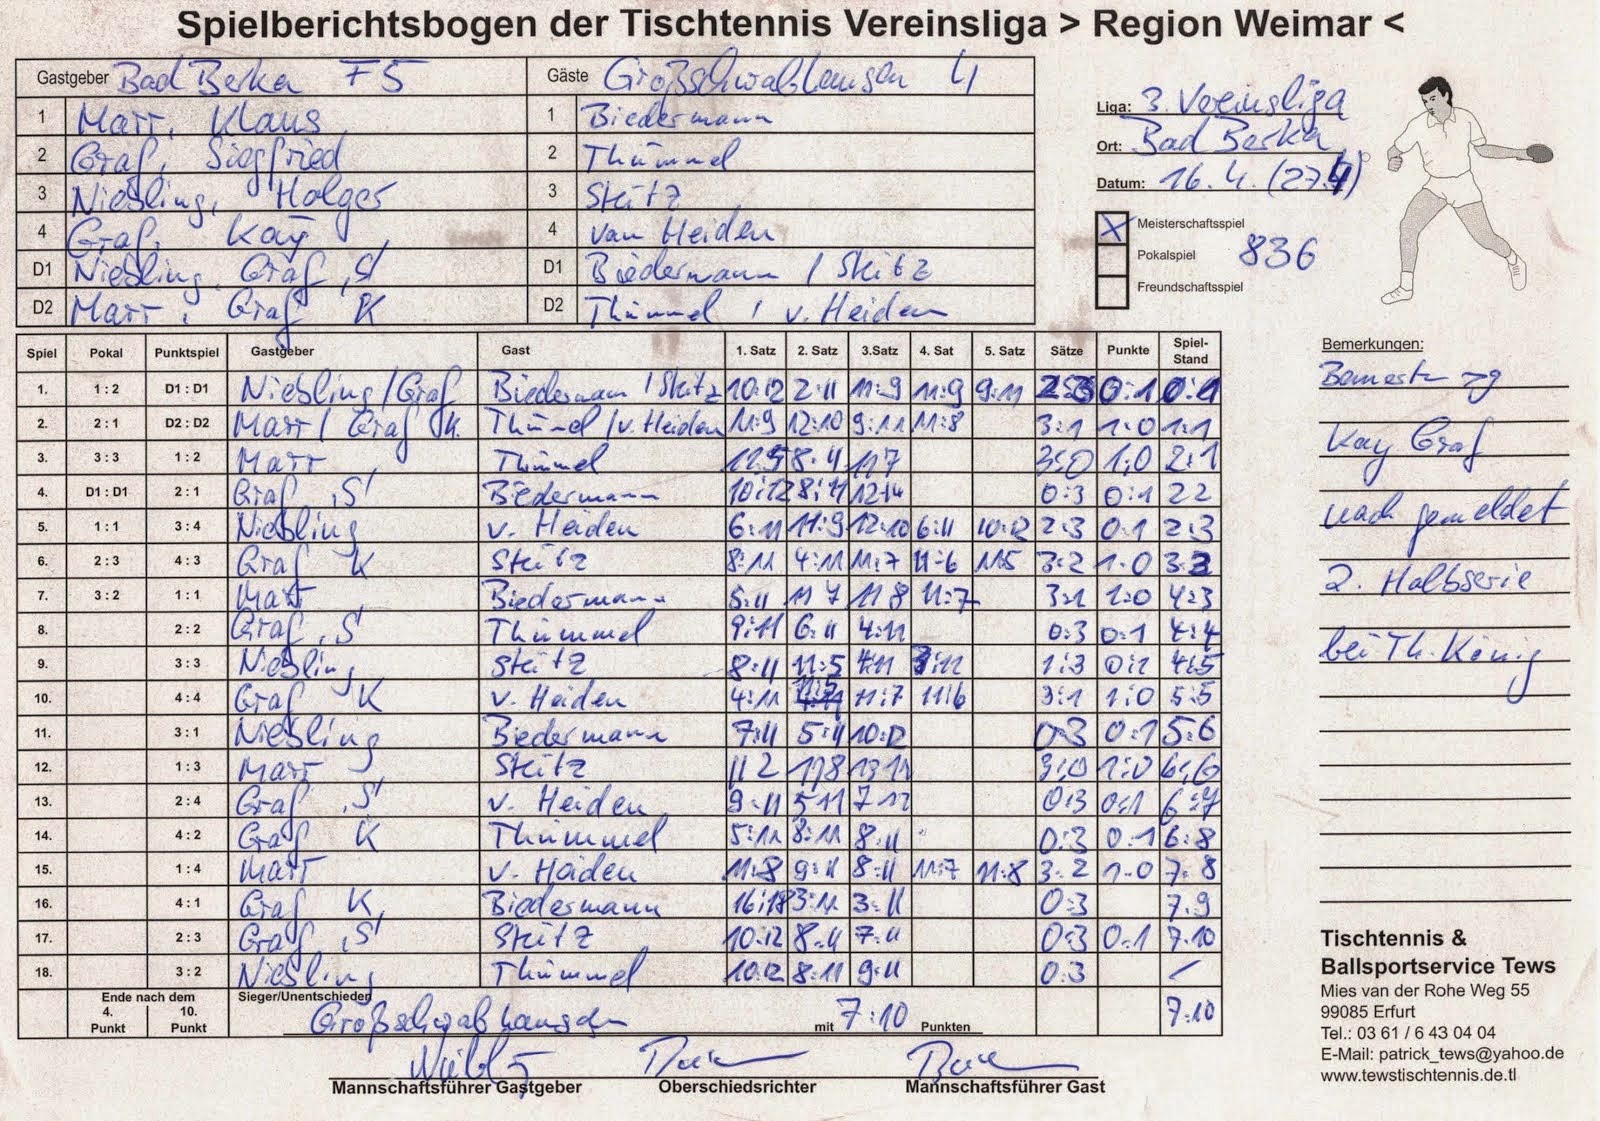 Spielberichtsbogen der Tischtennis Vereinsliga > Region Weimar <
Gastgeber Bad Berka F5 Gäste Großschwabhausen 4
1 Marr, Klaus 1 Biedermann
2 Graf, Siegfried 2 Thümmel
3 Niebling, Holger 3 Skitz
4 Graf, Kay 4 van Heiden
D1 Niebling, Graf, S D1 Biedermann / Skitz
D2 Marr, Graf K D2 Thümmel / v. Heiden
Liga: 3. Vereinsliga
Ort: Bad Berka
Datum: 16.4. (27.4)
X Meisterschaftsspiel
Pokalspiel 836
Freundschaftsspiel
Spiel Pokal Punktspiel Gastgeber Gast 1. Satz 2. Satz 3.Satz 4. Sat 5. Satz Sätze Punkte Spiel-Stand
1. 1 : 2 D1 : D1 Niebling/Graf Biedermann /Skitz 10:12 2:11 11:9 11:9 9:11 2:3 0:1 0:1
2. 2 : 1 D2 : D2 Marr/ Graf K. Thümel /v. Heiden 11:9 12:10 9:11 11:8 3:1 1:0 1:1
3. 3 : 3 1 : 2 Marr Thümmel 8:11 11 7 3:0 1:0 2:1
4. D1 : D1 2 : 1 Graf ,S' Biedermann 10:12 8:11 12 14 0:3 0:1 2 2
5. 1 : 1 3 : 4 Niebling v. Heiden 6:11 11:9 12:10 6:11 10:12 2:3 0:1 2:3
6. 2 : 3 4 : 3 Graf K Skitz 8:11 4:11 11:7 11-6 11:5 3:2 1-0 3:3
7. 3 : 2 1 : 1 Marr Biedermann 5:11 11 7 11 8 11:7 3:1 1:0 4:3
8. 2 : 2 Graf ,S' Thümmel 9:11 6:11 4:11 0:3 0:1 4:4
9. 3 : 3 Niebling Skitz 8:11 11:5 4:11 1:3 0:1 4:5
10. 4 : 4 Graf K v. Heiden 4:11 11:5 11:7 11:6 3:1 1:0 5:5
11. 3 : 1 Niebling Biedermann 7:11 5:11 10:12 0:3 0:1 5:6
12. 1 : 3 Marr Skitz 11 2 11 8 13 11 3:0 1:0 6:6
13. 2 : 4 Graf ,S' v. Heiden 9:11 5 11 0:3 0:1 6:7
14. 4 : 2 Graf K Thümmel 5:11 8:11 8:11 0:3 0:1 6:8
15. 1 : 4 Marr v. Heiden 11:8 9:11 8:11 11:7 11:8 3:2 1-0 7:8
16. 4 : 1 Graf K, Biedermann 16:18 3:11 3:11 0:3 7.9
17. 2 : 3 Graf ,S' Skitz 10:12 8:11 7:11 0:3 0-1 7:10
18. 3 : 2 Niebling Thümmel 10:12 8:11 9:11 0:3 /
Ende nach dem
4. Punkt 10. Punkt
Sieger/Unentschieden
Großschwabhausen mit 7:10 Punkten 7:10
Mannschaftsführer Gastgeber Oberschiedsrichter Mannschaftsführer Gast
Bemerkungen:
Kay Graf
nach gemeldet
2. Halbserie
bei Th. König
Tischtennis &
Ballsportservice Tews
Mies van der Rohe Weg 55
99085 Erfurt
Tel.: 03 61 / 6 43 04 04
E-Mail: patrick_tews@yahoo.de
www.tewstischtennis.de.tl